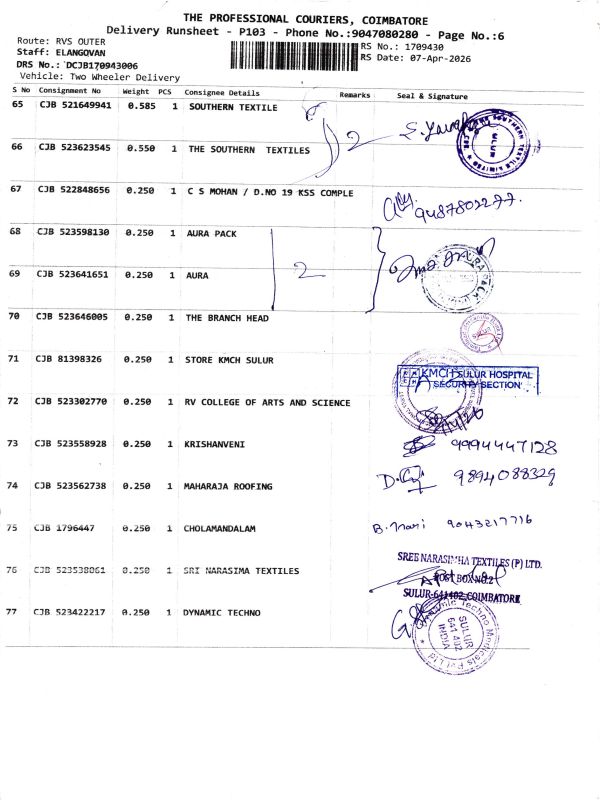 THE PROFESSIONAL COURIERS, COIMBATORE
Delivery Runsheet - P103 - Phone No.:9047080280 - Page No.:6
Route: RVS OUTER
RS No.: 1709430
Staff: ELANGOVAN
RS Date: 07-Apr-2026
DRS No.: DCJB170943006
Vehicle: Two Wheeler Delivery
S No Consignment No Weight PCS Consignee Details Remarks Seal & Signature
65 CJB 521649941 0.585 1 SOUTHERN TEXTILE
2
SULUR
66 CJB 523623545 0.550 1 THE SOUTHERN TEXTILES
67 CJB 522848656 0.250 1 C S MOHAN / D.NO 19 KSS COMPLE
9487802277.
68 CJB 523598130 0.250 1 AURA PACK
2
69 CJB 523641651 0.250 1 AURA
70 CJB 523646005 0.250 1 THE BRANCH HEAD
71 CJB 81398326 0.250 1 STORE KMCH SULUR
KMCH SULUR HOSPITAL
SECURITY SECTION
72 CJB 523302770 0.250 1 RV COLLEGE OF ARTS AND SCIENCE
73 CJB 523558928 0.250 1 KRISHANVENI
9994447128
74 CJB 523562738 0.250 1 MAHARAJA ROOFING
9894088329
75 CJB 1796447 0.250 1 CHOLAMANDALAM
B. Mari 9043217716
76 CJB 523538061 0.250 1 SRI NARASIMA TEXTILES
SREE NARASIMHA TEXTILES (P) LTD.
POST BOX NO.2
SULUR-641402, COIMBATORE
77 CJB 523422217 0.250 1 DYNAMIC TECHNO
Dynamic Techno Medicals Pvt Ltd
SULUR
641 402
INDIA